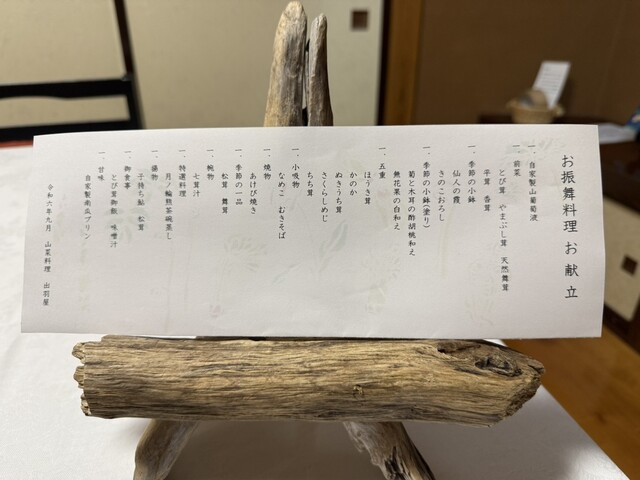 お振舞料理 お献立
一、自家製山葡萄液
一、前菜
とび茸 やまぶし茸 天然舞茸
平茸 香茸
一、季節の小鉢
仙人の霞
きのこおろし
一、季節の小鉢(塗り)
菊と木耳の酢胡桃和え
無花果の白和え
一、五重
ほうき茸
かのか
ぬきうち茸
さくらしめじ
もち茸
一、小吸物
なめこ むきそば
一、焼物
あけび焼き
一、季節の一品
松茸 舞茸
一、椀物
七茸汁
一、特選料理
月ノ輪熊茶碗蒸し
一、揚物
子持ち鮎 松茸
一、御食事
とび茸御飯 味噌汁
一、甘味
自家製南瓜プリン
令和六年九月 山菜料理 出羽屋